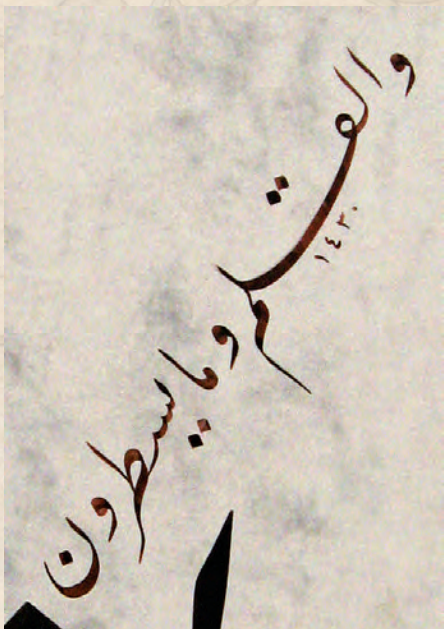 والقلم وما يسطرون
١٤٣٠